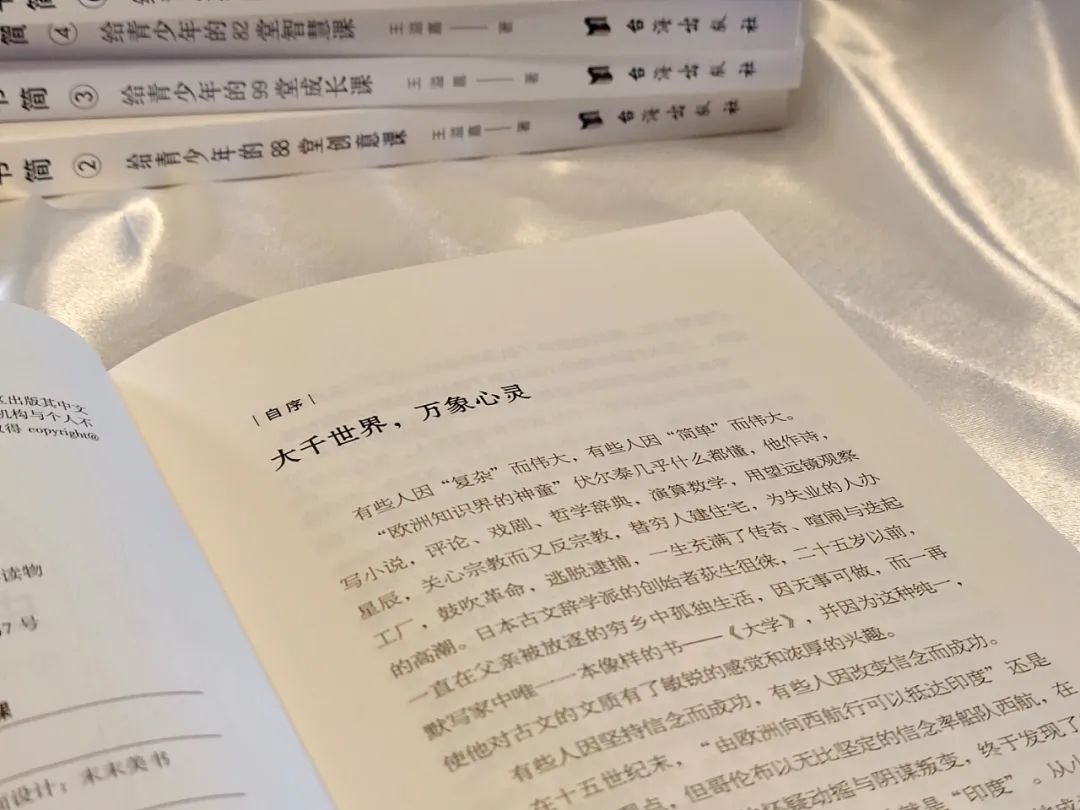 简 ④ 给青少年的82堂智慧课 王溢嘉——著 台海出版社
书简 ③ 给青少年的99堂成长课 王溢嘉——著 台海出版社
书简 ② 给青少年的88堂创意课 王溢嘉——著 台海出版社
出版其中文
机构与个人不
得 copyright@
读物
67 号
课
面设计：末末美书
|自序|
大千世界，万象心灵
有些人因“复杂”而伟大，有些人因“简单”而伟大。
“欧洲知识界的神童”伏尔泰几乎什么都懂，他作诗，
写小说，评论、戏剧、哲学辞典，演算数学，用望远镜观察
星辰，关心宗教而又反宗教，替穷人建住宅，为失业的人办
工厂，鼓吹革命，逃脱逮捕，一生充满了传奇、喧闹与迭起
的高潮。日本古文辞学派的创始者荻生徂徕，二十五岁以前，
一直在父亲被放逐的穷乡中孤独生活，因无事可做，而一再
默写家中唯一一本像样的书——《大学》，并因为这种纯一，
使他对古文的文质有了敏锐的感觉和浓厚的兴趣。
有些人因坚持信念而成功，有些人因改变信念而成功。
在十五世纪末，“由欧洲向西航行可以抵达印度”还是
点，但哥伦布以无比坚定的信念率船队西航，在
怀疑动摇与阴谋叛变，终于发现了
是“印度”。从小